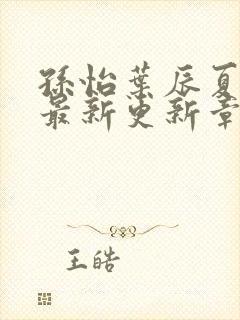 孫怡葉辰夏
最新更新章
王皓